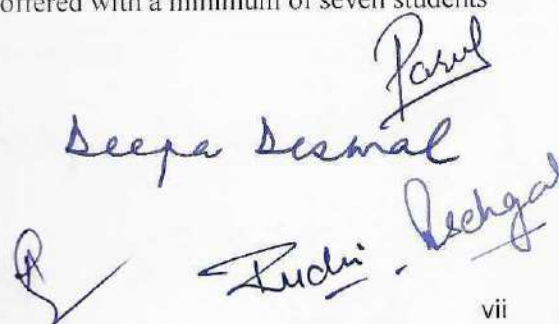 offered with a minimum of seven students
Parul
Deepa Desmal
Ruchi
vii